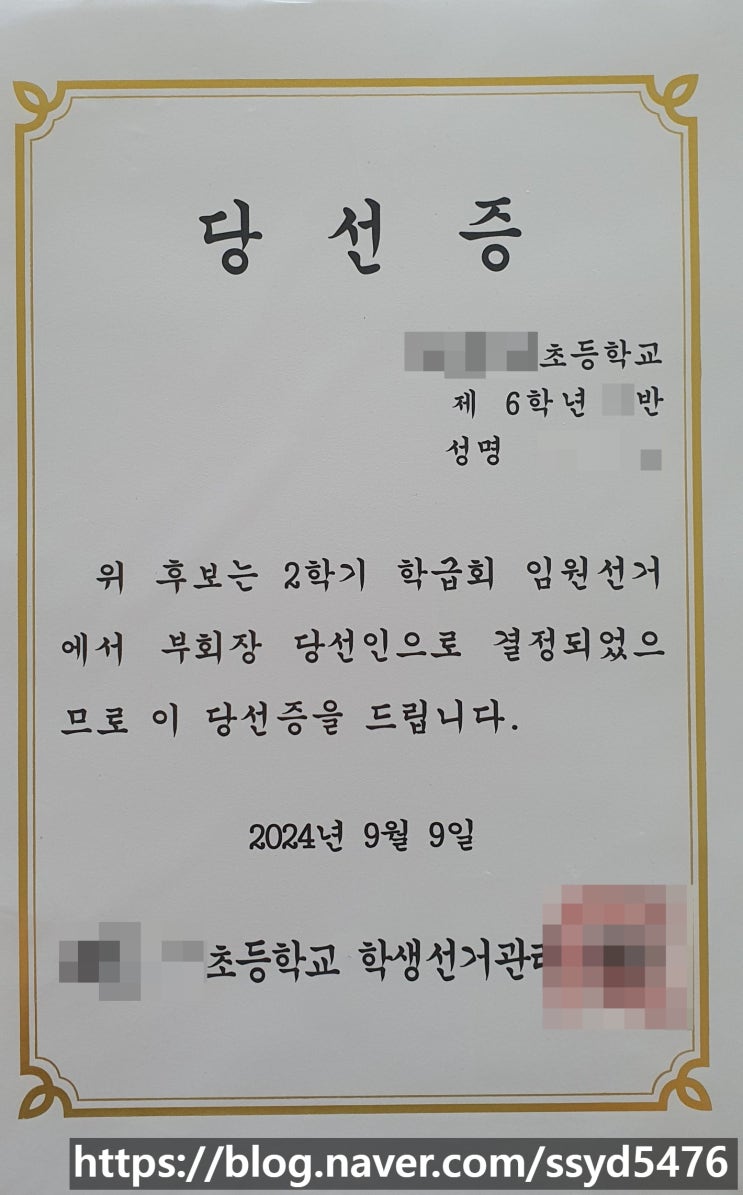 당 선 증
초등학교
제 6학년 반
성명
위 후보는 2학기 학급회 임원선거
에서 부회장 당선인으로 결정되었으
므로 이 당선증을 드립니다.
2024년 9월 9일
초등학교 학생선거관
https://blog.naver.com/ssyd5476